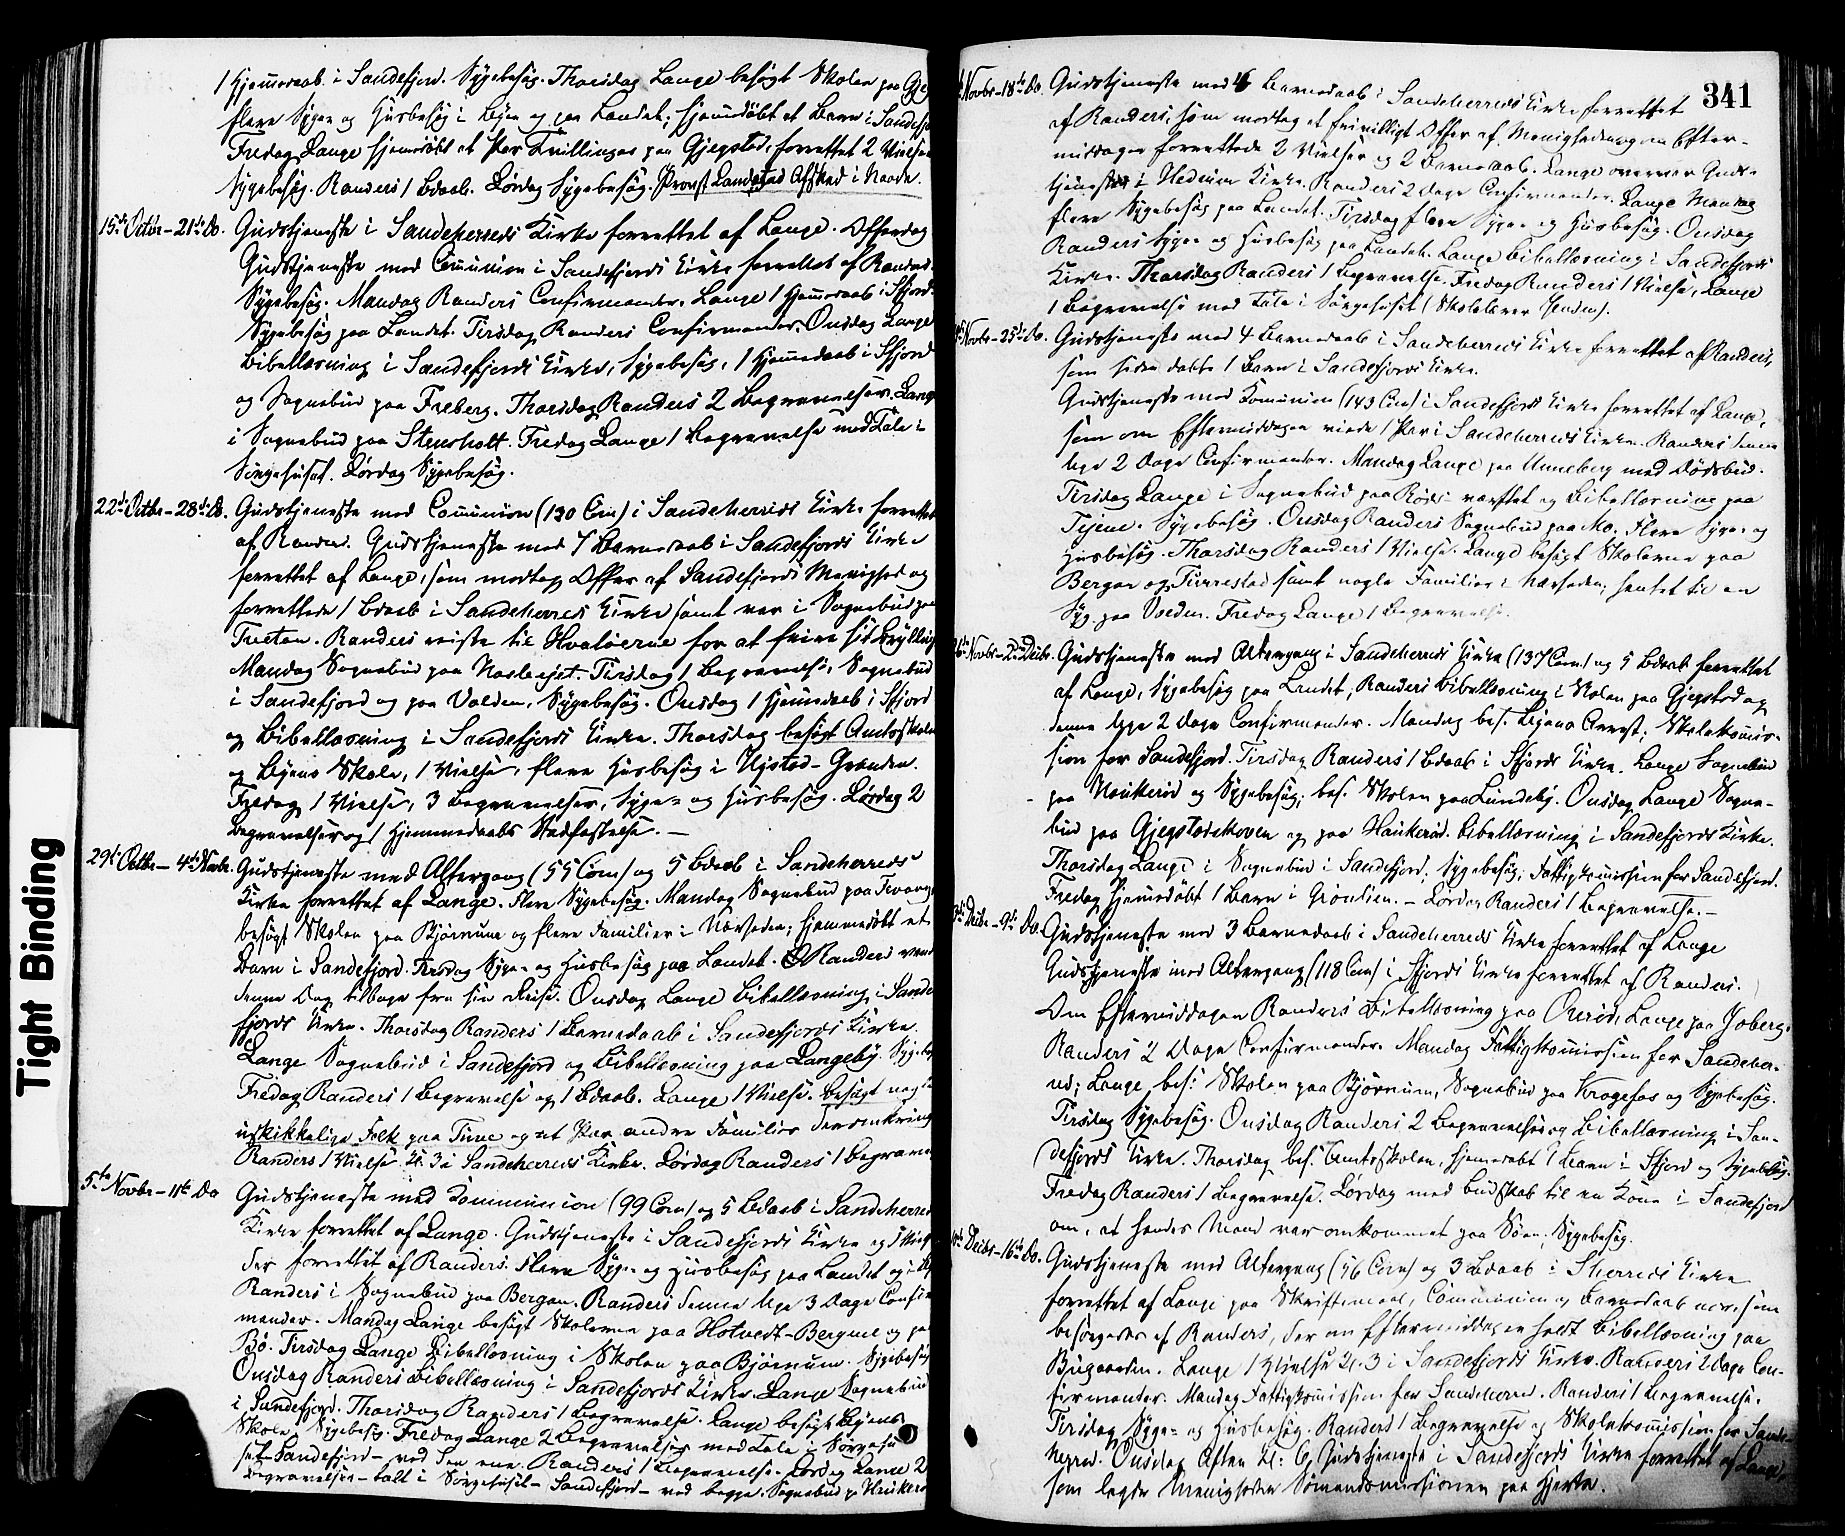 1 Hjemmedaab i Sandefjord. Sygebesøg. Thorsdag Lange besøgt Skolen paa
flere Syge- og Husbesøg i Byen og paa Landet; hjemmedøbt et Barn i
Fredag Lange hjemmedøbt et Par Tvillinger paa Gjegstad, forrettet 2 Vielser
Sygebesøg. Randers 1 Bdaab. Lørdag Sygebesøg. Provst Landstad Afsked i Naade.
15de Octbr - 21de Do. Gudstjeneste i Sandeherreds Kirke forrettet af Lange. Offerdag
Gudstjeneste med Communion i Sandefjords Kirke forrettet af Randers.
Sygebesøg. Mandag Randers Confirmander. Lange 1 Hjemmedaab i Sfjord.
Sygebesøg paa Landet. Tirsdag Randers Confirmander. Onsdag Lange
Bibellæsning i Sandefjords Kirke, Sygebesøg, 1 Hjemmedaab i Sfjord
og Sognebud paa Freberg. Thorsdag Randers 2 Begravelser. Lange
i Sognebud paa Stensholt. Fredag Lange 1 Begravelse med Tale i
Sørgehuset. Lørdag Sygebesøg.
22de Octbr - 28de Do. Gudstjeneste med Communion (130 Com) i Sandeherreds Kirke forrettet
af Randers. Gudstjeneste med 7 Barnedaab i Sandefjords Kirke
forrettet af Lange, som modtog Offer af Sandefjords Menighed og
forrettede 1 Bdaab i Sandeherreds Kirke samt var i Sognebud paa
Treton. Randers reiste til Hvaløerne for at feire sit Bryllup
Mandag Sognebud paa. Tirsdag 1 Begravelse, Sognebud
i Sandefjord og paa Volden, Sygebesøg. Onsdag 1 Hjemmedaab i Sfjord
og Bibellæsning i Sandefjords Kirke. Thorsdag besøgt Amtsskolen
og Byens Skole, 1 Vielse, flere Husbesøg i Nystad-Grænden.
Fredag 1 Vielse, 3 Begravelser, Syge- og Husbesøg. Lørdag 2
Begravelser og 1 Hjemmedaabs Stadfæstelse. —
29de Octbr - 4de Novbr. Gudstjeneste med Altergang (55 Com) og 5 Bdaab i Sandeherreds
Kirke forrettet af Lange. Flere Sygebesøg. Mandag Sognebud paa
besøgt Skolen paa Bjørnum og flere Familier i Nærheden; hjemmedøbt et
Barn i Sandefjord. Tirsdag Syge- og Husbesøg paa Landet. Randers vendte
denne Dag tilbage fra sin Reise. Onsdag Lange Bibellæsning i Sande
fjords Kirke. Thorsdag Randers 1 Barnedaab i Sandefjords Kirke.
Lange Sognebud i Sandefjord og Bibellæsning paa Langeby.
Fredag Randers 1 Begravelse og 1 Bdaab. Lange 1 Vielse, besøgt nogle
uskikkelige Folk paa og et Par andre Familier deromkring
Randers 1 Vielse Kl. 3 i Sandeherreds Kirke. Lørdag Randers 1 Begrave
5te Novbr - 11te Do Gudstjeneste med Kommunion (99 Com) og 5 Bdaab i Sandeherreds
Kirke forrettet af Lange. Gudstjeneste i Sandefjords Kirke og
der forrettet af Randers. Flere Syge- og Husbesøg paa Landet og i
Randers i Sognebud paa Bergan. Randers denne Uge 3 Dage Confir
mander. Mandag Lange besøgt Skolerne paa Hotvedt-Bergene og paa
Bø. Tirsdag Lange Bibellæsning i Skolen paa Bjørnum. Sygebesøg
Onsdag Randers Bibellæsning i Sandefjords Kirke. Lange Sognebud
i Sandefjord. Thorsdag Randers 1 Begravelse. Lange besøgt Byens
Skole, Sygebesøg. Fredag Lange 2 Begravelser med Tale i Sørgehu
set - Sandefjord - ved den ene. Randers 1 Begravelse. Lørdag Lange 2
Begravelser - Tale i Sørgehuset - Sandefjord - ved begge. Sognebud p
Tight Binding
341
Novbr - 18de Do. Gudstjeneste med 4 Barnedaab i Sandeherreds Kirke forrettet
af Randers, som modtog et frivilligt Offer af Menigheden og om Efter-
middagen forrettede 2 Vielser og 2 Barnedaab. Lange overvar Guds-
tjenesten i Hedrum Kirke. Randers 2 Dage Confirmander. Lange Mandag
flere Sygebesøg paa Landet. Tirsdag flere Syge- og Husbesøg. Onsdag
Randers Syge- og Husbesøg paa Landet. Lange Bibellæsning i Sandefjords
Kirke. Thorsdag Randers 1 Begravelse. Fredag Randers 1 Vielse, Lange
1 Begravelse med Tale i Sørgehuset (Skolelærer).
Novbr - 25de Do. Gudstjeneste med 4 Barnedaab i Sandeherreds Kirke forrettet af Randers,
som siden døbte 1 Barn i Sandefjords Kirke.
Gudstjeneste med Komunion (143 Com) i Sandefjords Kirke forrettet af Lange,
som om Eftermiddagen viede 1 Par i Sandeherreds Kirke. Randers denne
Uge 2 Dage Confirmander. Mandag Lange paa Unneberg med Dødsbud.
Tirsdag Lange i Sognebud paa Røds-værftet og Bibellæsning paa
Tjene. Sygebesøg. Onsdag Randers Sognebud paa Mo. Flere Syge- og
Husbesøg. Thorsdag Randers 1 Vielse. Lange besøgt Skolerne paa
Bergan og Furrestad samt nogle Familier i Nærheden; hentet til en
Syg paa Volden. Fredag Lange 1 Begravelse.
26de Novbr - 2den Decbr. Gudstjeneste med Altergang i Sandeherreds Kirke (137 Com) og 5 Bdaab forrettet
af Lange, Sygebesøg paa Landet; Randers Bibellæsning i Skolen paa Gjegstad og
denne Uge 2 Dage Confirmander. Mandag bes. Byens Arrest; Skolekommis-
sion for Sandefjord. Tirsdag Randers 1 Bdaab i Sfjords Kirke. Lange Sognebud
paa Haukerød og Sygebesøg; bes. Skolen paa Lundeby. Onsdag Lange Sogne-
bud paa Gjegstadskoven og paa Haukerød. Bibellæsning i Sandefjords Kirke.
Thorsdag Lange i Sognebud i Sandefjord; Sygebesøg; Fattigkommission for Sandefjord.
Fredag hjemmedøbt 1 Barn i Grønlien. — Lørdag Randers 1 Begravelse. —
3die Decbr - 9de Do. Gudstjeneste med 3 Barnedaab i Sandeherreds Kirke forrettet af Lange
Gudstjeneste med Altergang (118 Com) i Sfjords Kirke forrettet af Randers.
Om Eftermiddagen Randers Bibellæsning paa, Lange paa Joberg.
Randers 2 Dage Confirmander. Mandag Fattigkommission for Sandeher-
red; Lange bes. Skolen paa Bjørnum, Sognebud paa Krogefos og Sygebesøg.
Tirsdag Sygebesøg. Onsdag Randers 2 Begravelser og Bibellæsning i San-
defjords Kirke. Thorsdag bes. Amtsskolen, hjemmedøbt 1 Barn i Sfjord og Sygebesøg.
Fredag Randers 1 Begravelse. Lørdag med Budskab til en Kone i Sandefjord
om, at hendes Mand var omkommet paa Søen; Sygebesøg.
10de Decbr - 16de Do. Gudstjeneste med Altergang (56 Com) og 3 Bdaab i Sherreds Kirke
forrettet af Lange paa Skriftemaal, Communion og Barnedaab nær, som
besørgedes af Randers, der om Eftermiddagen holdt Bibellæsning paa
Bugaarden. Lange 1 Vielse Kl. 3 i Sandefjords Kirke. Randers 2 Dage Con-
firmander. Mandag Fattigkommission for Sandeherred. Randers 1 Begravelse.
Tirsdag Syge- og Husbesøg. Randers 1 Begravelse og Skolekommission for Sande-
herred. Onsdag Aften Kl: 6, Gudstjeneste i Sandefjords Kirke forrettet af Lange,
som lagde Menigheden Sømandsmissionen paa Hjerte.